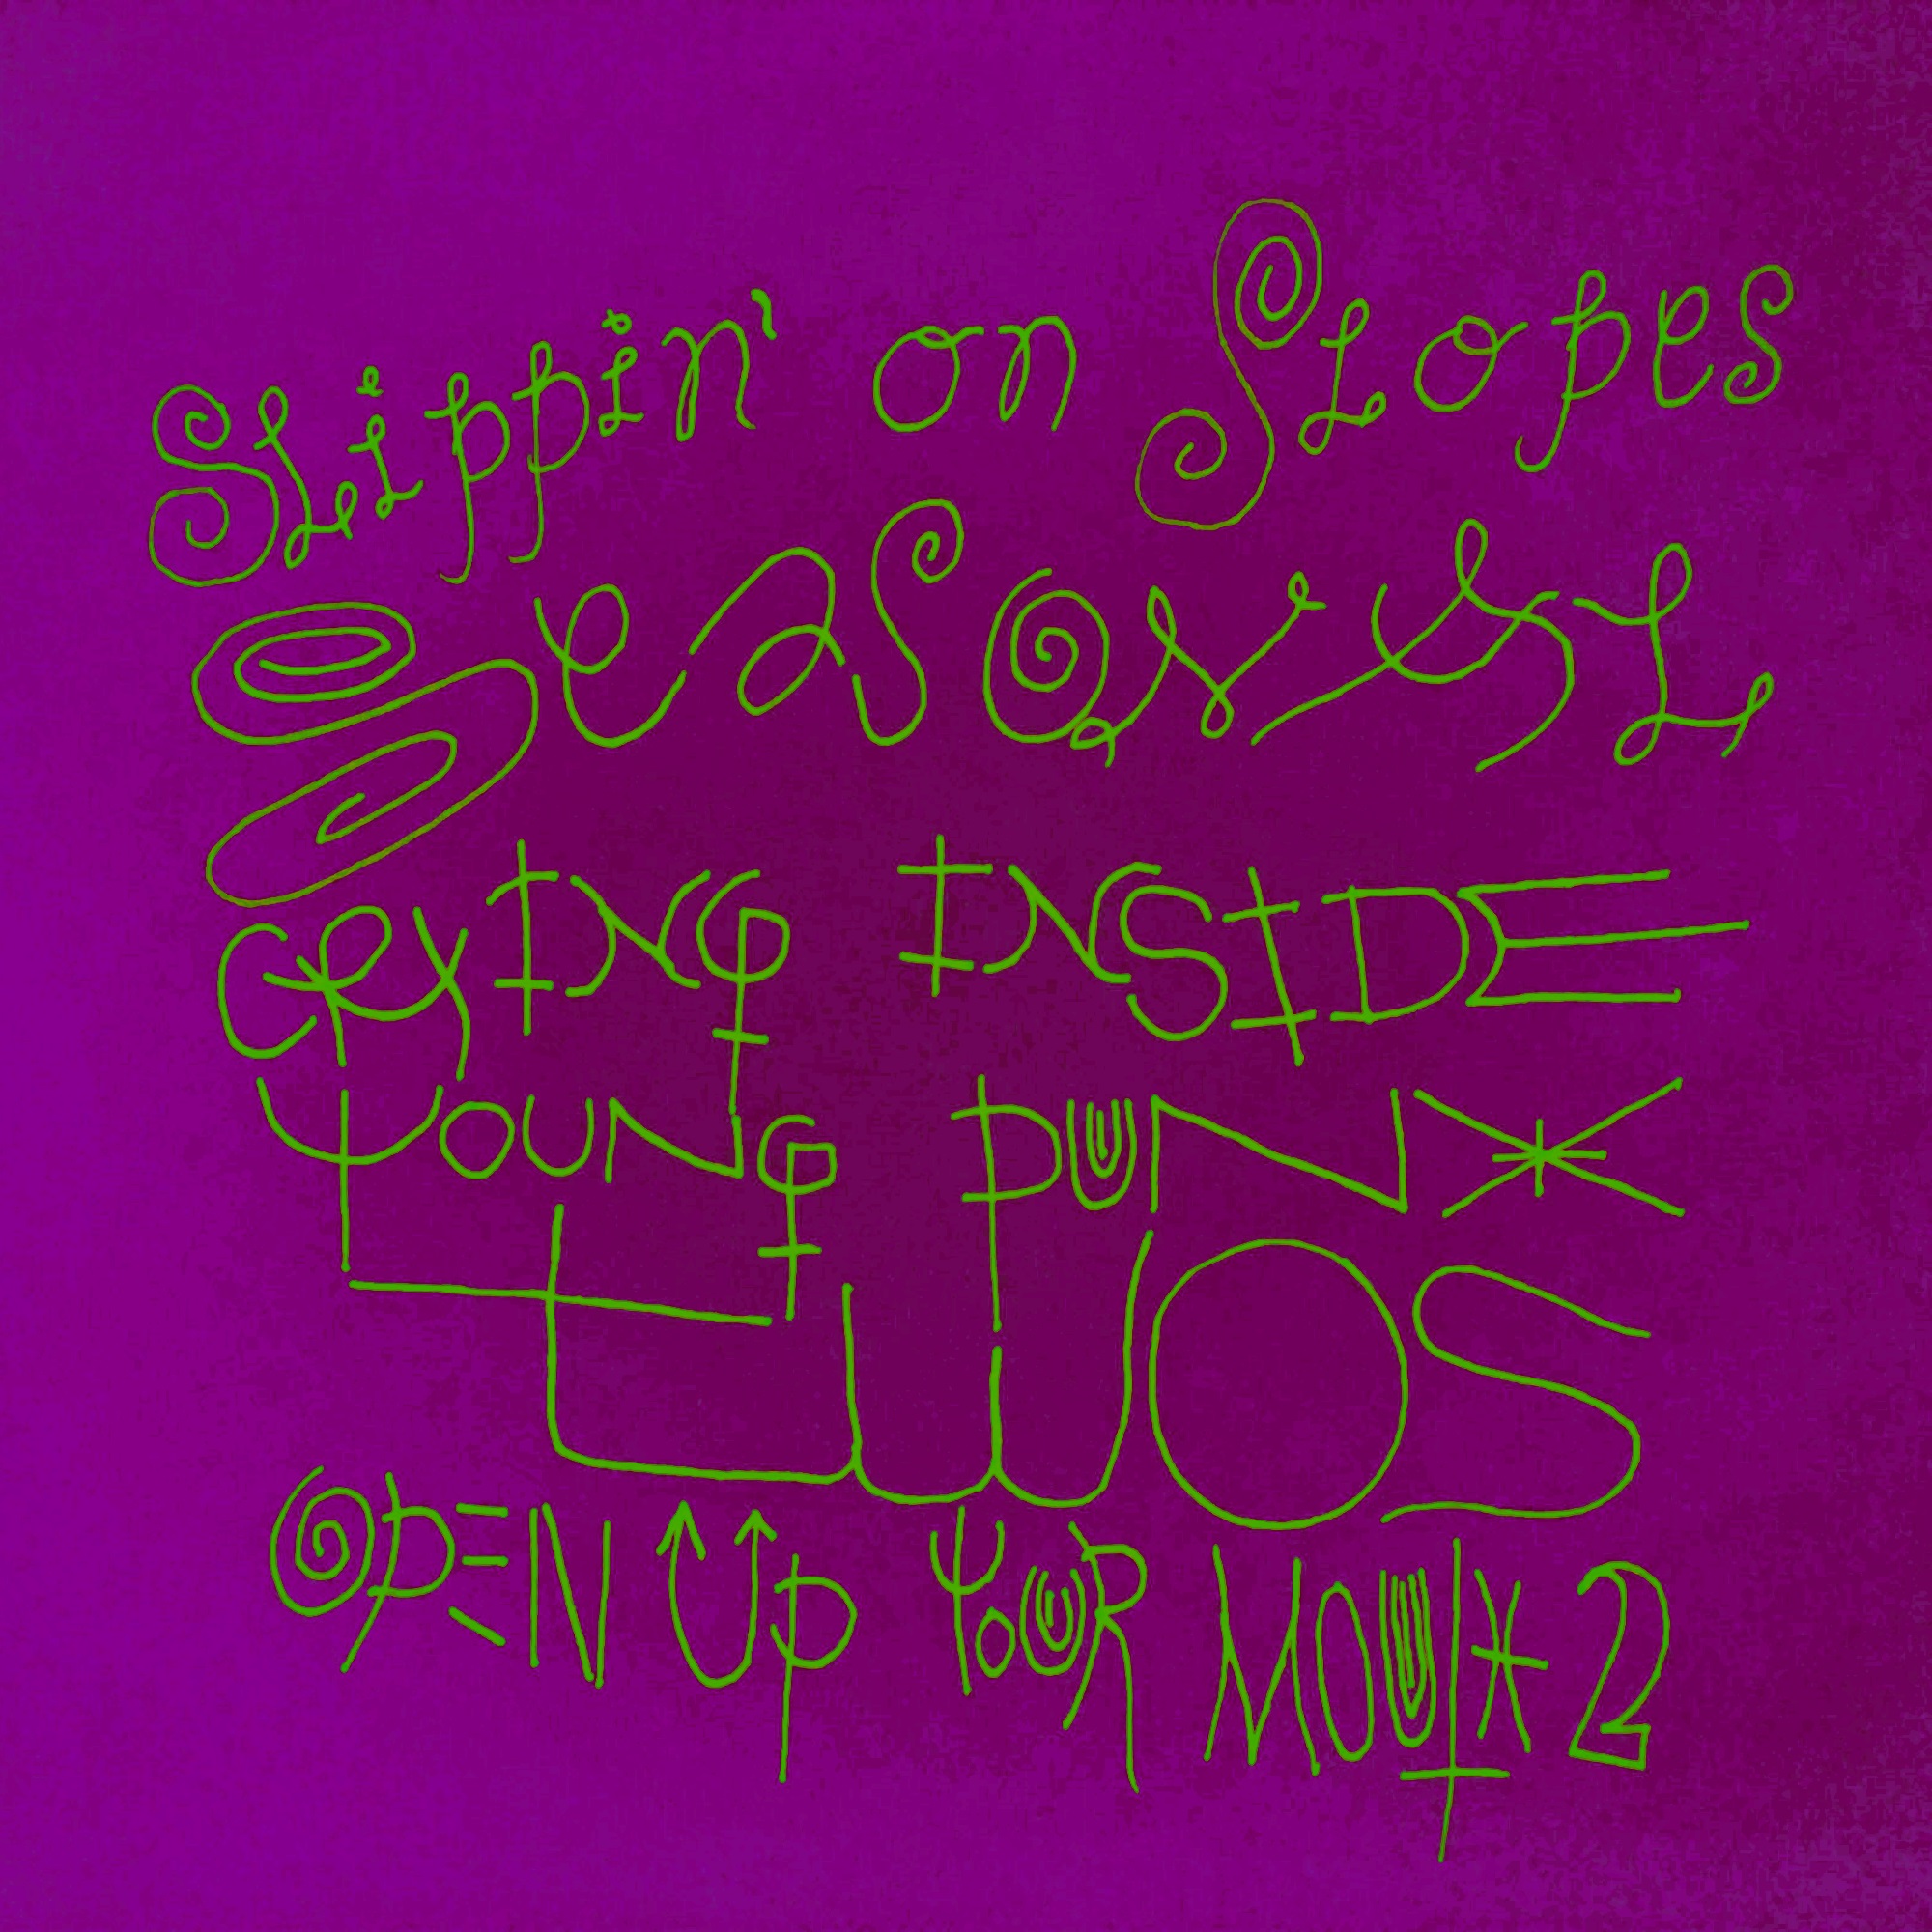 Slippin' on Slopes
SeasonaL
CRYING INSIDE
YOUNG PUNX
twos
OPEN UP YOUR MOUTH 2